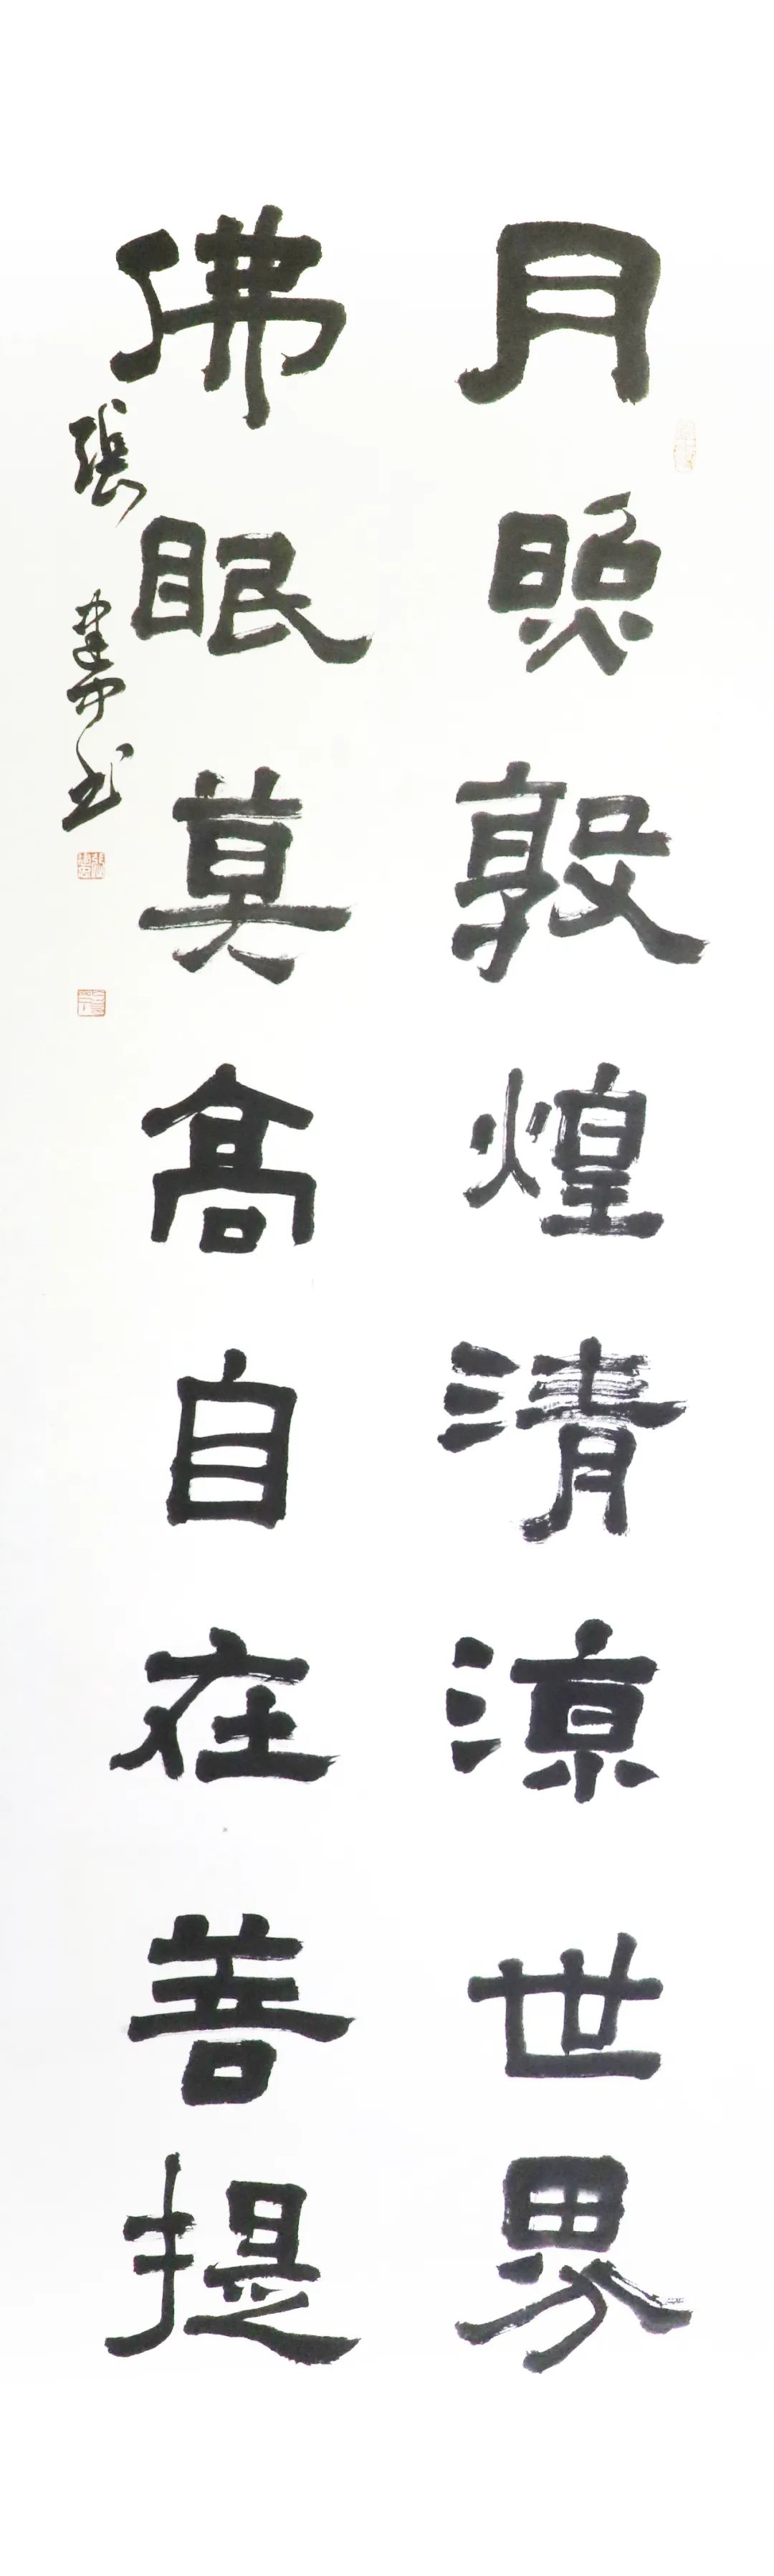 月照敦煌清涼世界
佛眠莫高自在菩提
張建中书